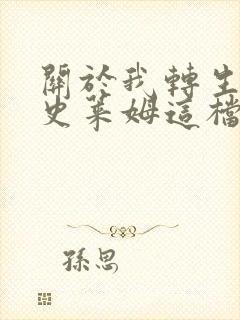 關於我轉生
史萊姆這檔
孫思